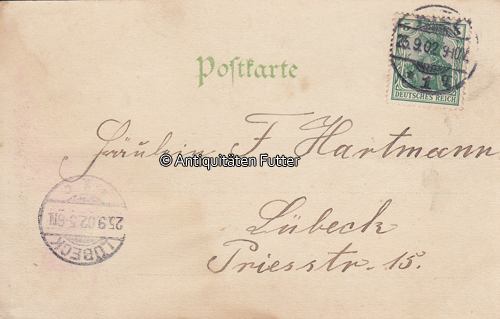 Postkarte
25.9.02.9-10V.
DEUTSCHES REICH
Fräulein F. Hartmann
© Antiquitäten Futter
Lübeck
Priesstr. 15.
LÜBECK
25.9.02.5-6N